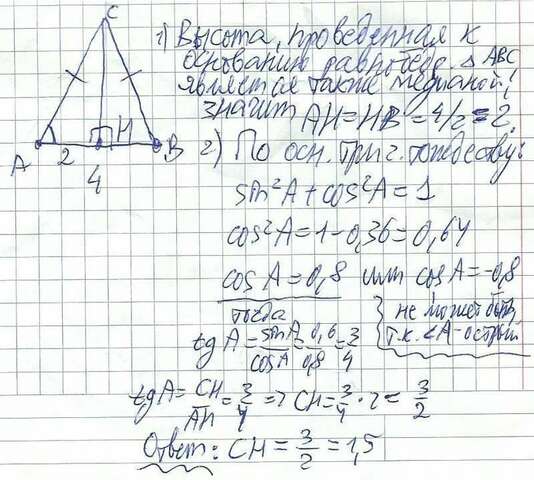 C
A
H
B
2
4
1) Высота, проведенная к
основанию равнобедр. △ ABC
является также медианой!
значит AH=HB=4/2=2
2) По осн. триг. тождеству:
sin²A+cos²A=1
cos²A=1-0,36=0,64
cos A=0,8 или cos A=-0,8
тогда
не может быть,
т.к. <A-острый
tg A=sinA/cosA=0,6/0,8=3/4
tgA=CH/AH=3/4=>CH=3/4·2=3/2
Ответ: CH=3/2=1,5